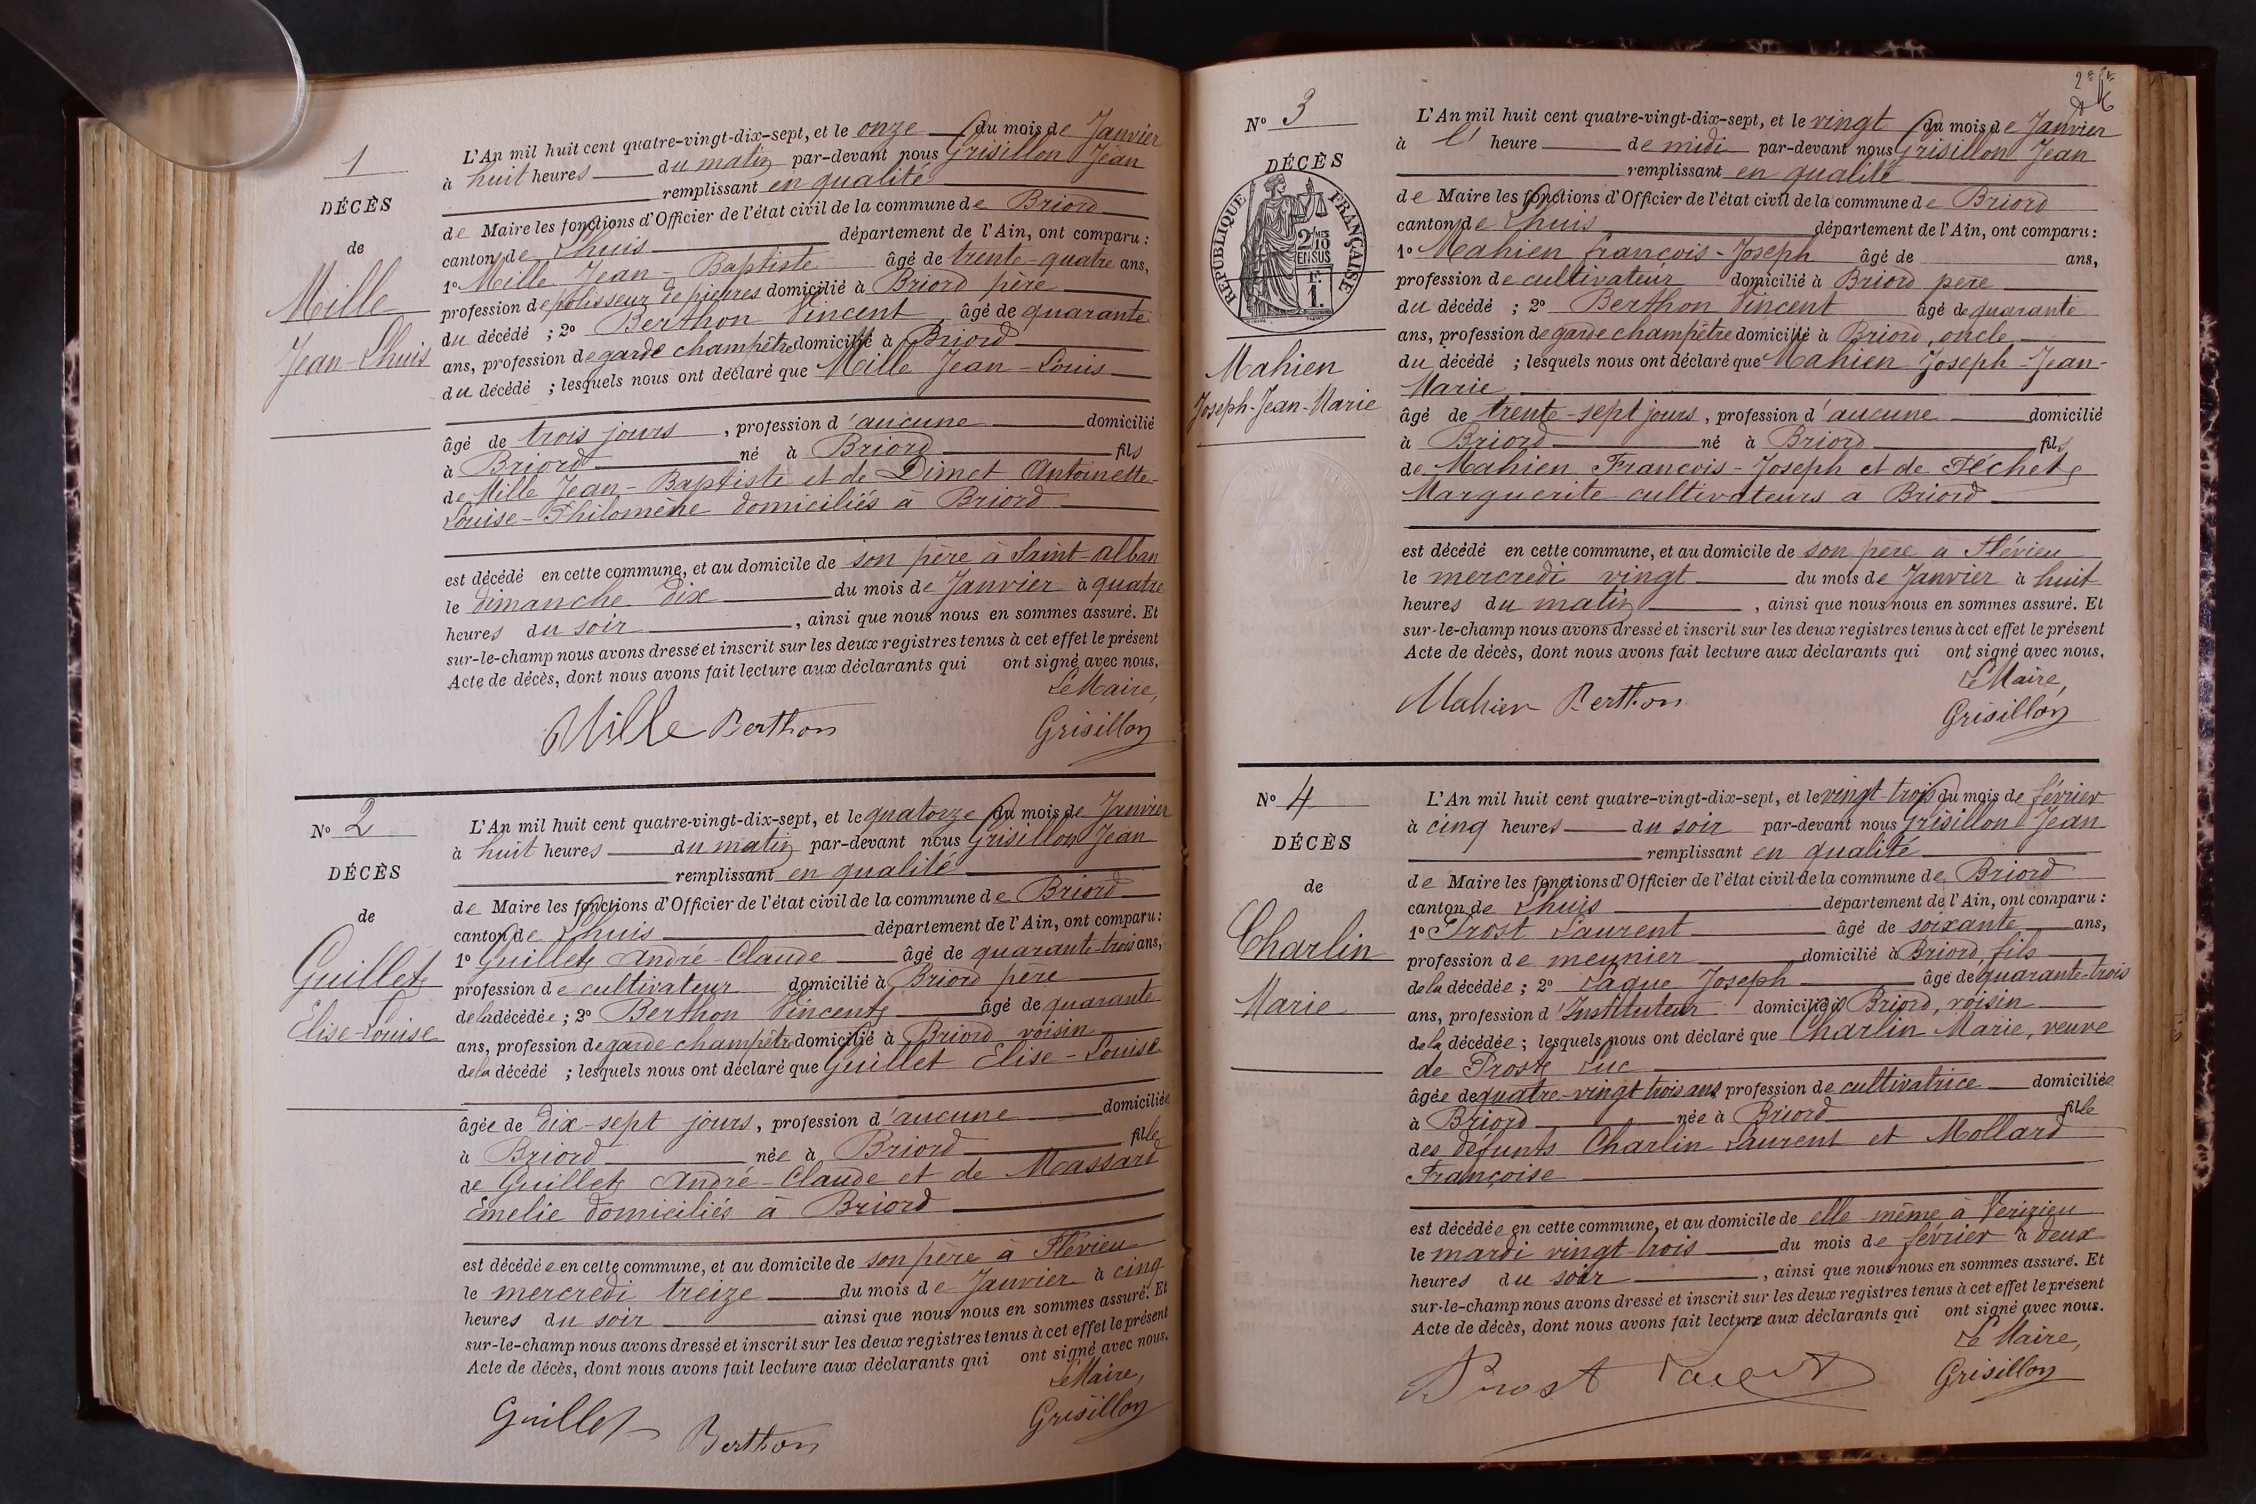 1
DÉCÈS
de
Mille
Jean-Lhuis
L'An mil huit cent quatre-vingt-dix-sept, et le onze du mois de Janvier
à huit heures du matin par-devant nous Grisillon Jean
remplissant en qualité
de Maire les fonctions d'Officier de l'état civil de la commune de Briord
canton de Lhuis département de l'Ain, ont comparu :
1º Mille Jean-Baptiste âgé de trente-quatre ans,
profession de polisseur de pierres domicilié à Briord père
du décédé ; 2º Berthon Vincent âgé de quarante
ans, profession de garde champêtre domicilié à Briord
du décédé ; lesquels nous ont déclaré que Mille Jean-Louis
âgé de trois jours, profession d'aucune domicilié
à Briord né à Briord fils
de Mille Jean-Baptiste et de Dimet Antoinette-
Louise-Philomène domiciliés à Briord
est décédé en cette commune, et au domicile de son père à Saint-Alban
le dimanche dix du mois de Janvier à quatre
heures du soir, ainsi que nous nous en sommes assuré. Et
sur-le-champ nous avons dressé et inscrit sur les deux registres tenus à cet effet le présent
Acte de décès, dont nous avons fait lecture aux déclarants qui ont signé avec nous.
Le Maire,
Mille Berthon Grisillon
Nº 2
DÉCÈS
de
Guillet
Elise-Louise
L'An mil huit cent quatre-vingt-dix-sept, et le quatorze du mois de Janvier
à huit heures du matin par-devant nous Grisillon Jean
remplissant en qualité
de Maire les fonctions d'Officier de l'état civil de la commune de Briord
canton de Lhuis département de l'Ain, ont comparu :
1º Guillet André-Claude âgé de quarante-trois ans,
profession de cultivateur domicilié à Briord père
de la décédée ; 2º Berthon Vincent âgé de quarante
ans, profession de garde champêtre domicilié à Briord voisin
de la décédé ; lesquels nous ont déclaré que Guillet Elise-Louise
âgée de dix-sept jours, profession d'aucune domiciliée
à Briord née à Briord fille
de Guillet André-Claude et de Massard
Emelie domiciliés à Briord
est décédée en cette commune, et au domicile de son père à Flévieu
le mercredi treize du mois de Janvier à cinq
heures du soir ainsi que nous nous en sommes assuré. Et
sur-le-champ nous avons dressé et inscrit sur les deux registres tenus à cet effet le présent
Acte de décès, dont nous avons fait lecture aux déclarants qui ont signé avec nous.
Le Maire,
Guillet Berthon Grisillon
Nº 3
DÉCÈS
RÉPUBLIQUE FRANÇAISE
2/10
EN SUS
1 F.
Mahien
Joseph-Jean-Marie
L'An mil huit cent quatre-vingt-dix-sept, et le vingt du mois de Janvier
à l' heure de midi par-devant nous Grisillon Jean
remplissant en qualité
de Maire les fonctions d'Officier de l'état civil de la commune de Briord
canton de Lhuis département de l'Ain, ont comparu :
1º Mahien François-Joseph âgé de ans,
profession de cultivateur domicilié à Briord père
du décédé ; 2º Berthon Vincent âgé de quarante
ans, profession de garde champêtre domicilié à Briord, oncle
du décédé ; lesquels nous ont déclaré que Mahien Joseph-Jean-
Marie
âgé de trente-sept jours, profession d'aucune domicilié
à Briord né à Briord fils
de Mahien François-Joseph et de Péchet
Marguerite cultivateurs à Briord
est décédé en cette commune, et au domicile de son père à Flévieu
le mercredi vingt du mois de Janvier à huit
heures du matin, ainsi que nous nous en sommes assuré. Et
sur-le-champ nous avons dressé et inscrit sur les deux registres tenus à cet effet le présent
Acte de décès, dont nous avons fait lecture aux déclarants qui ont signé avec nous.
Le Maire,
Mahien Berthon Grisillon
Nº 4
DÉCÈS
de
Charlin
Marie
L'An mil huit cent quatre-vingt-dix-sept, et le vingt-trois du mois de février
à cinq heures du soir par-devant nous Grisillon Jean
remplissant en qualité
de Maire les fonctions d'Officier de l'état civil de la commune de Briord
canton de Lhuis département de l'Ain, ont comparu :
1º Prost Laurent âgé de soixante ans,
profession de meunier domicilié à Briord, fils
de la décédée ; 2º Laque Joseph âgé de quarante-trois
ans, profession d'Instituteur domicilié à Briord, voisin
de la décédée ; lesquels nous ont déclaré que Charlin Marie, veuve
de Prost Luc
âgée de quatre-vingt trois ans profession de cultivatrice domiciliée
à Briord née à Briord fille
des défunts Charlin Laurent et Mollard
Françoise
est décédée en cette commune, et au domicile de elle même à Vérizieu
le mardi vingt-trois du mois de février à deux
heures du soir, ainsi que nous nous en sommes assuré. Et
sur-le-champ nous avons dressé et inscrit sur les deux registres tenus à cet effet le présent
Acte de décès, dont nous avons fait lecture aux déclarants qui ont signé avec nous.
Le Maire,
Prost Grisillon